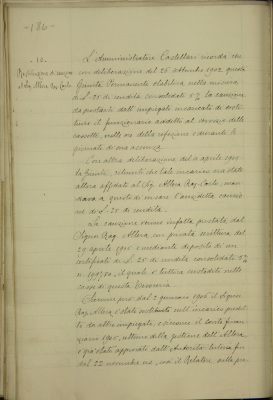 -186-
-10-
Restituzione di cauzione
al Sig. Allera Rag. Carlo.
L'Amministratore Castellari ricorda che
con deliberazione del 25 Settembre 1902 questa
Giunta Permanente stabiliva nella misura
di L. 25 di rendita consolidato 5% la cauzione
da prestarsi dall'impiegato incaricato di sosti-
tuire il funzionario addetto al servizio delle
cassette, nelle ore della refezione e durante le
giornate di sua assenza.
Con altra deliberazione del 2 aprile 1905
la Giunta, ritenuto che tale incarico era stato
allora affidato al Sig. Allera Rag. Carlo, man-
dava a questo di vincolare l'anzidetta cauzio-
ne di L. 25 di rendita.
La cauzione venne infatti prestata dal
Signor Rag. Allera con privata scrittura del
29 aprile 1905 e mediante deposito di un
certificato di L. 25 di rendita consolidato 5%
n. il quale è tuttora custodito nelle
casse di questa Tesoreria.
Siccome poi dal 2 gennaio 1906 il Signor
Rag. Allera è stato sostituito nell'incarico predet-
to da altro impiegato, e siccome il conto finan-
ziario 1905, ultimo della gestione dell'Allera,
è già stato approvato dall'Autorità tutoria fin
dal 22 novembre us., così il Relatore, nulla